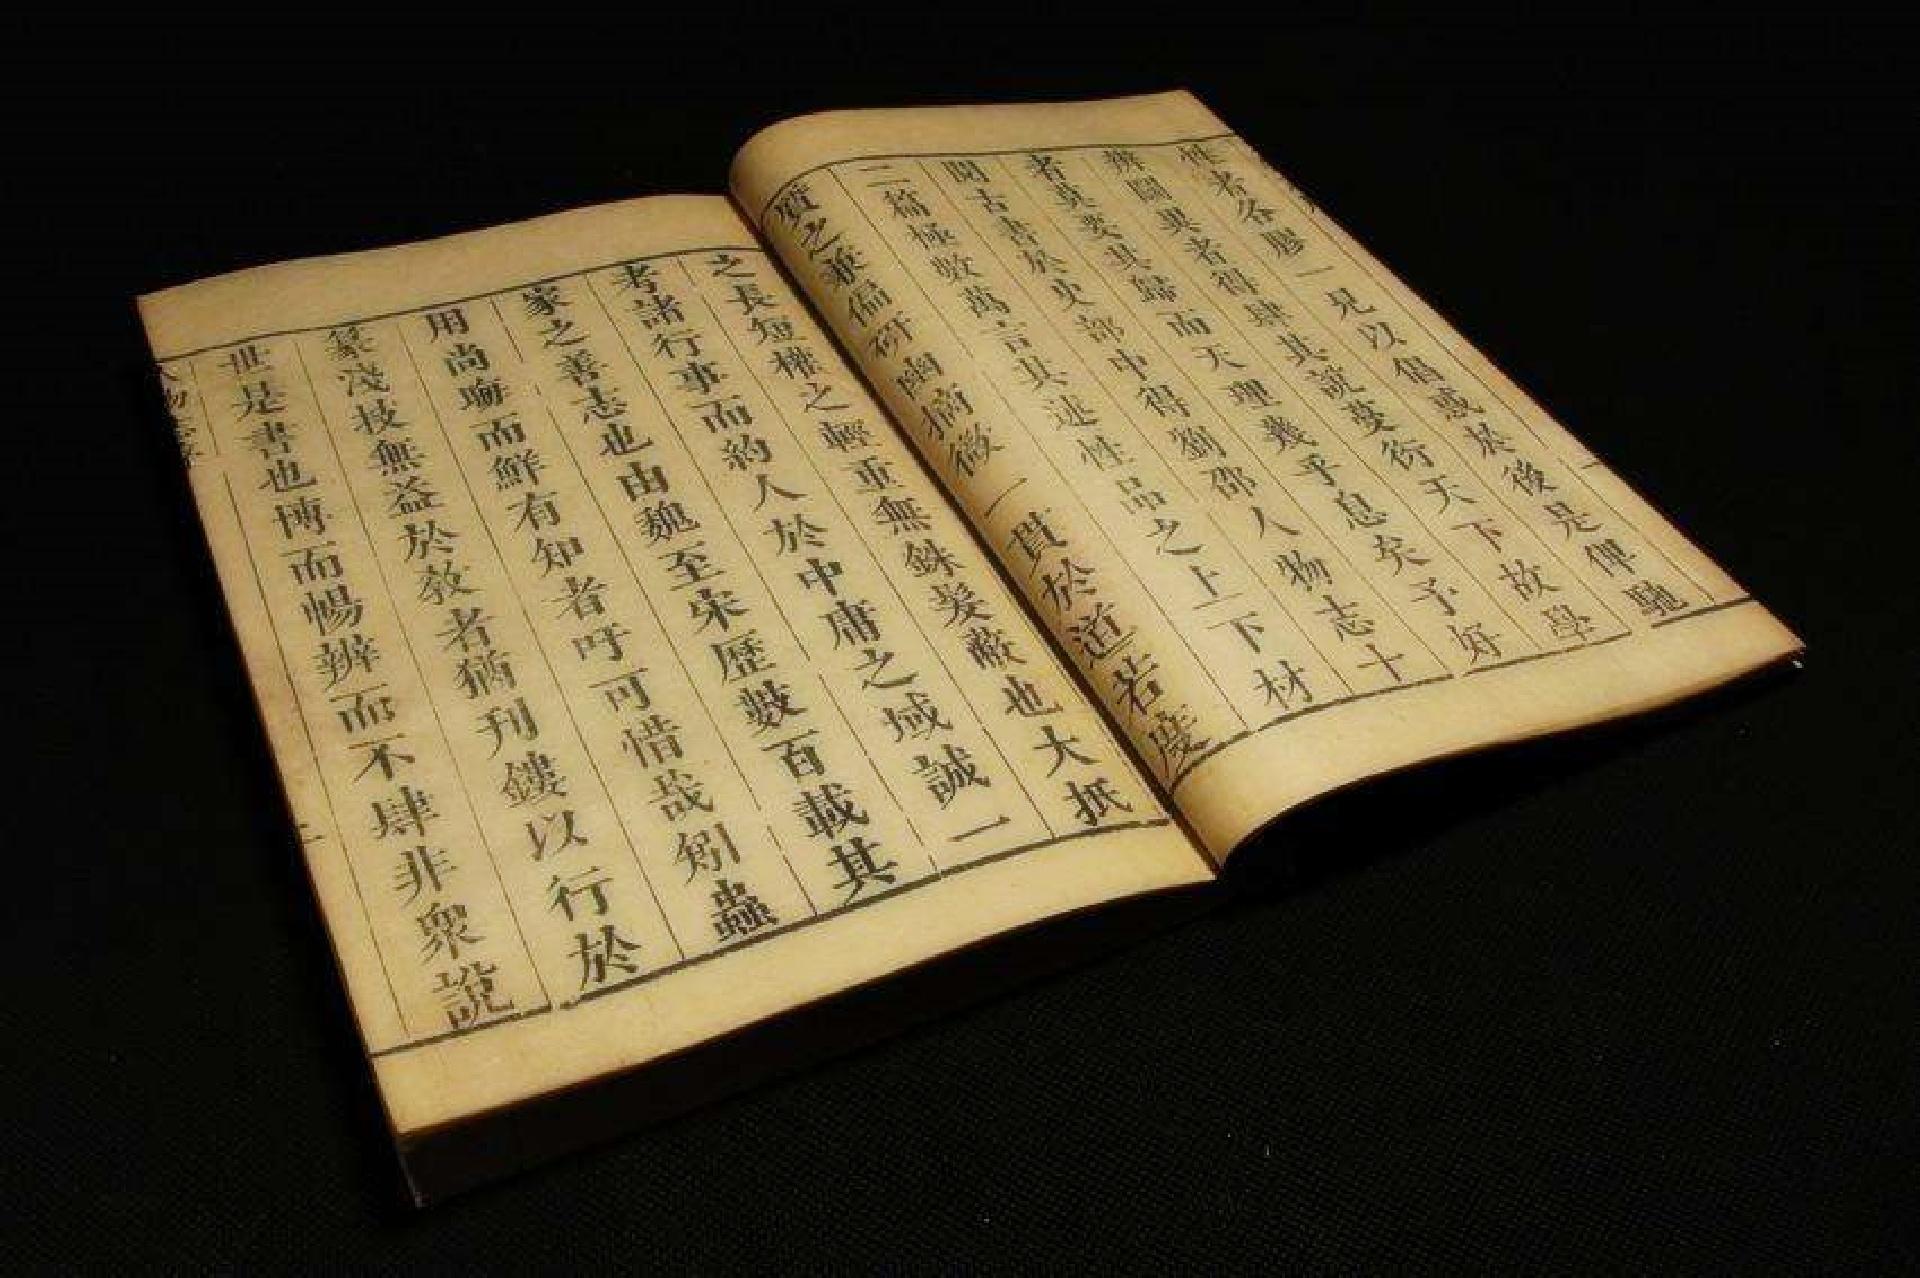 性者各膠一見以倡惑於後是俾馳
辨鬬異者得肆其說蔓衍天下故學
者莫要其歸而天理幾乎息矣予好
閱古書於史部中得劉邵人物志十
二篇極數萬言其述性品之上下材
質之兼偏研幽摘微一貫於道若度
之長短權之輕重無銖髮蔽也大抵
考諸行事而約人於中庸之域誠一
家之善志也由魏至宋歷數百載其
用尚晦而鮮有知者吁可惜哉矧蟲
篆淺技無益於教者猶刊鏤以行於
世是書也博而暢辨而不肆非衆說